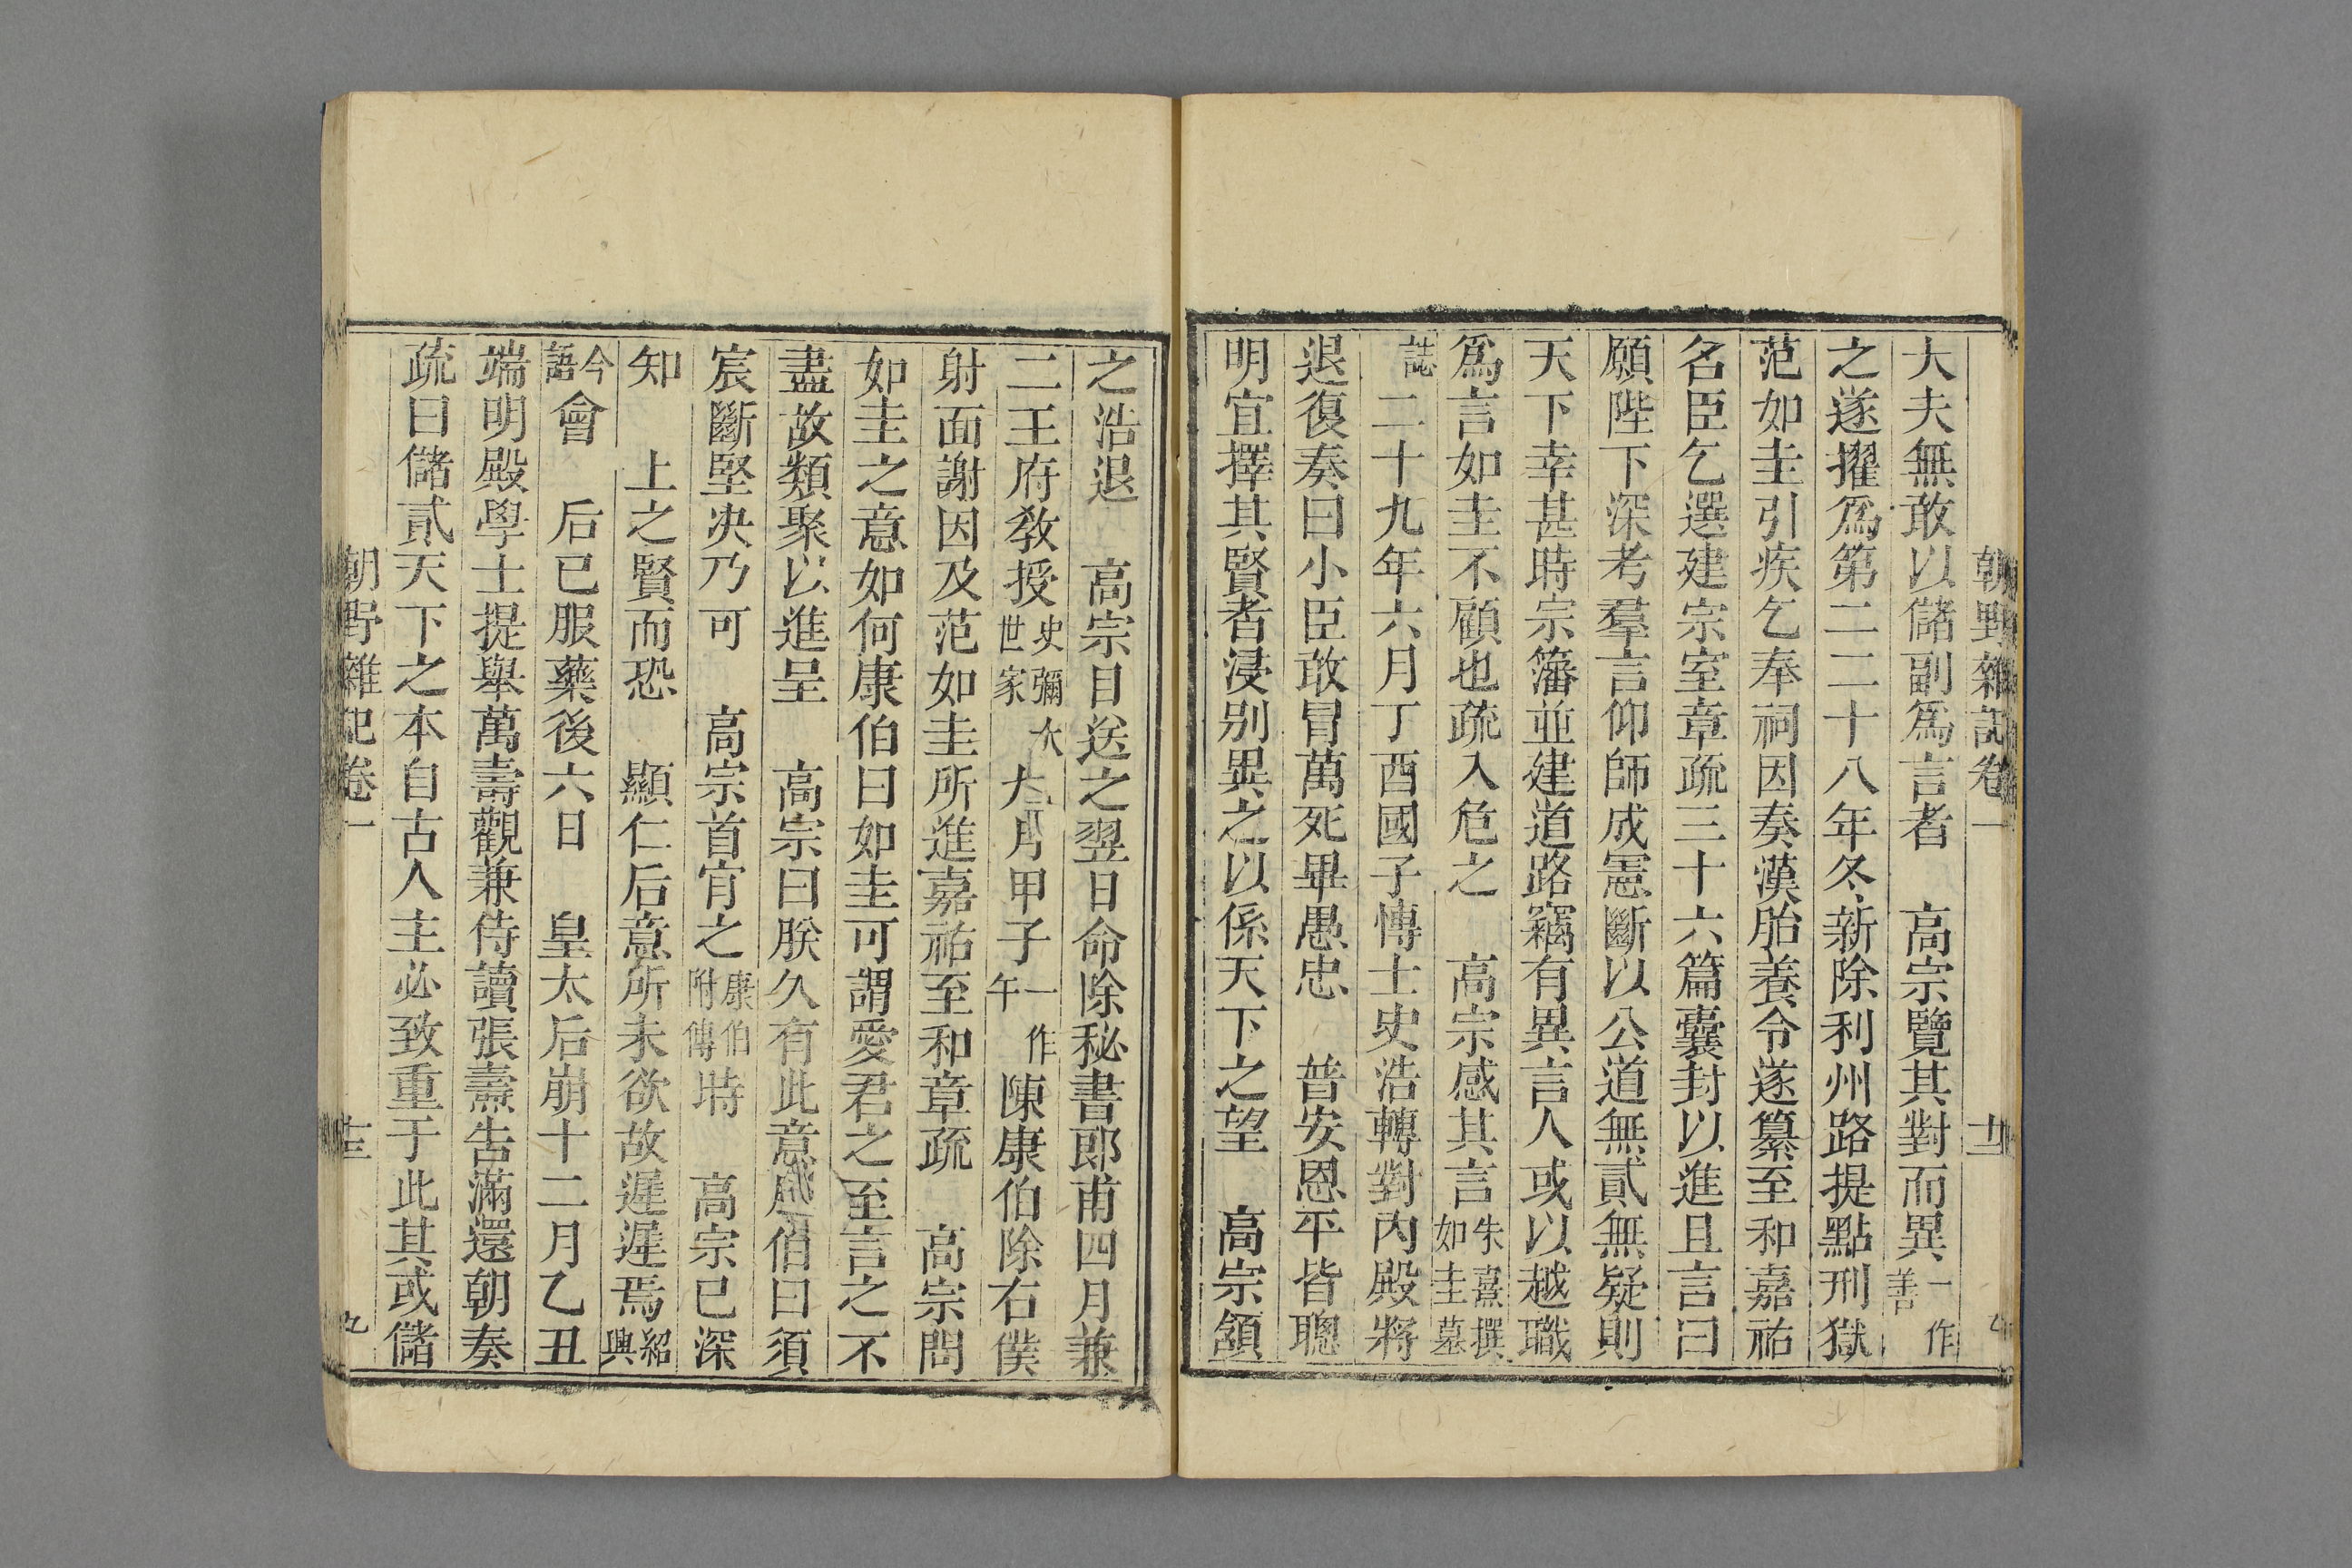 朝野雜記卷一
大夫無敢以儲副爲言者　高宗覽其對而異一作善
之遂擢爲第二二十八年冬新除利州路提點刑獄
范如圭引疾乞奉祠因奏漢胎養令遂纂至和嘉祐
名臣乞選建宗室章疏三十六篇囊封以進且言曰
願陛下深考羣言仰師成憲斷以公道無貳無疑則
天下幸甚時宗籓並建道路竊有異言人或以越職
爲言如圭不顧也疏入危之　高宗感其言朱熹撰如圭墓
誌　二十九年六月丁酉國子博士史浩轉對內殿將
退復奏曰小臣敢冒萬死畢愚忠　普安恩平皆聰
明宜擇其賢者浸別異之以係天下之望　高宗頷
之浩退　高宗目送之翌日命除秘書郎甫四月兼
二王府敎授史彌大世家　月甲子一作午陳康伯除右僕
射面謝因及范如圭所進嘉祐至和章疏　高宗問
如圭之意如何康伯曰如圭可謂愛君之至言之不
盡故類聚以進呈　高宗曰朕久有此意康伯曰須
宸斷堅决乃可　高宗首肯之康伯附傳時　高宗已深
知　上之賢而恐　顯仁后意所未欲故遲遲焉紹興
今語會　后已服藥後六日　皇太后崩十二月乙丑
端明殿學士提舉萬壽觀兼侍讀張燾告滿還朝奏
疏曰儲貳天下之本自古人主必致重于此其或儲
朝野雜記卷一　九